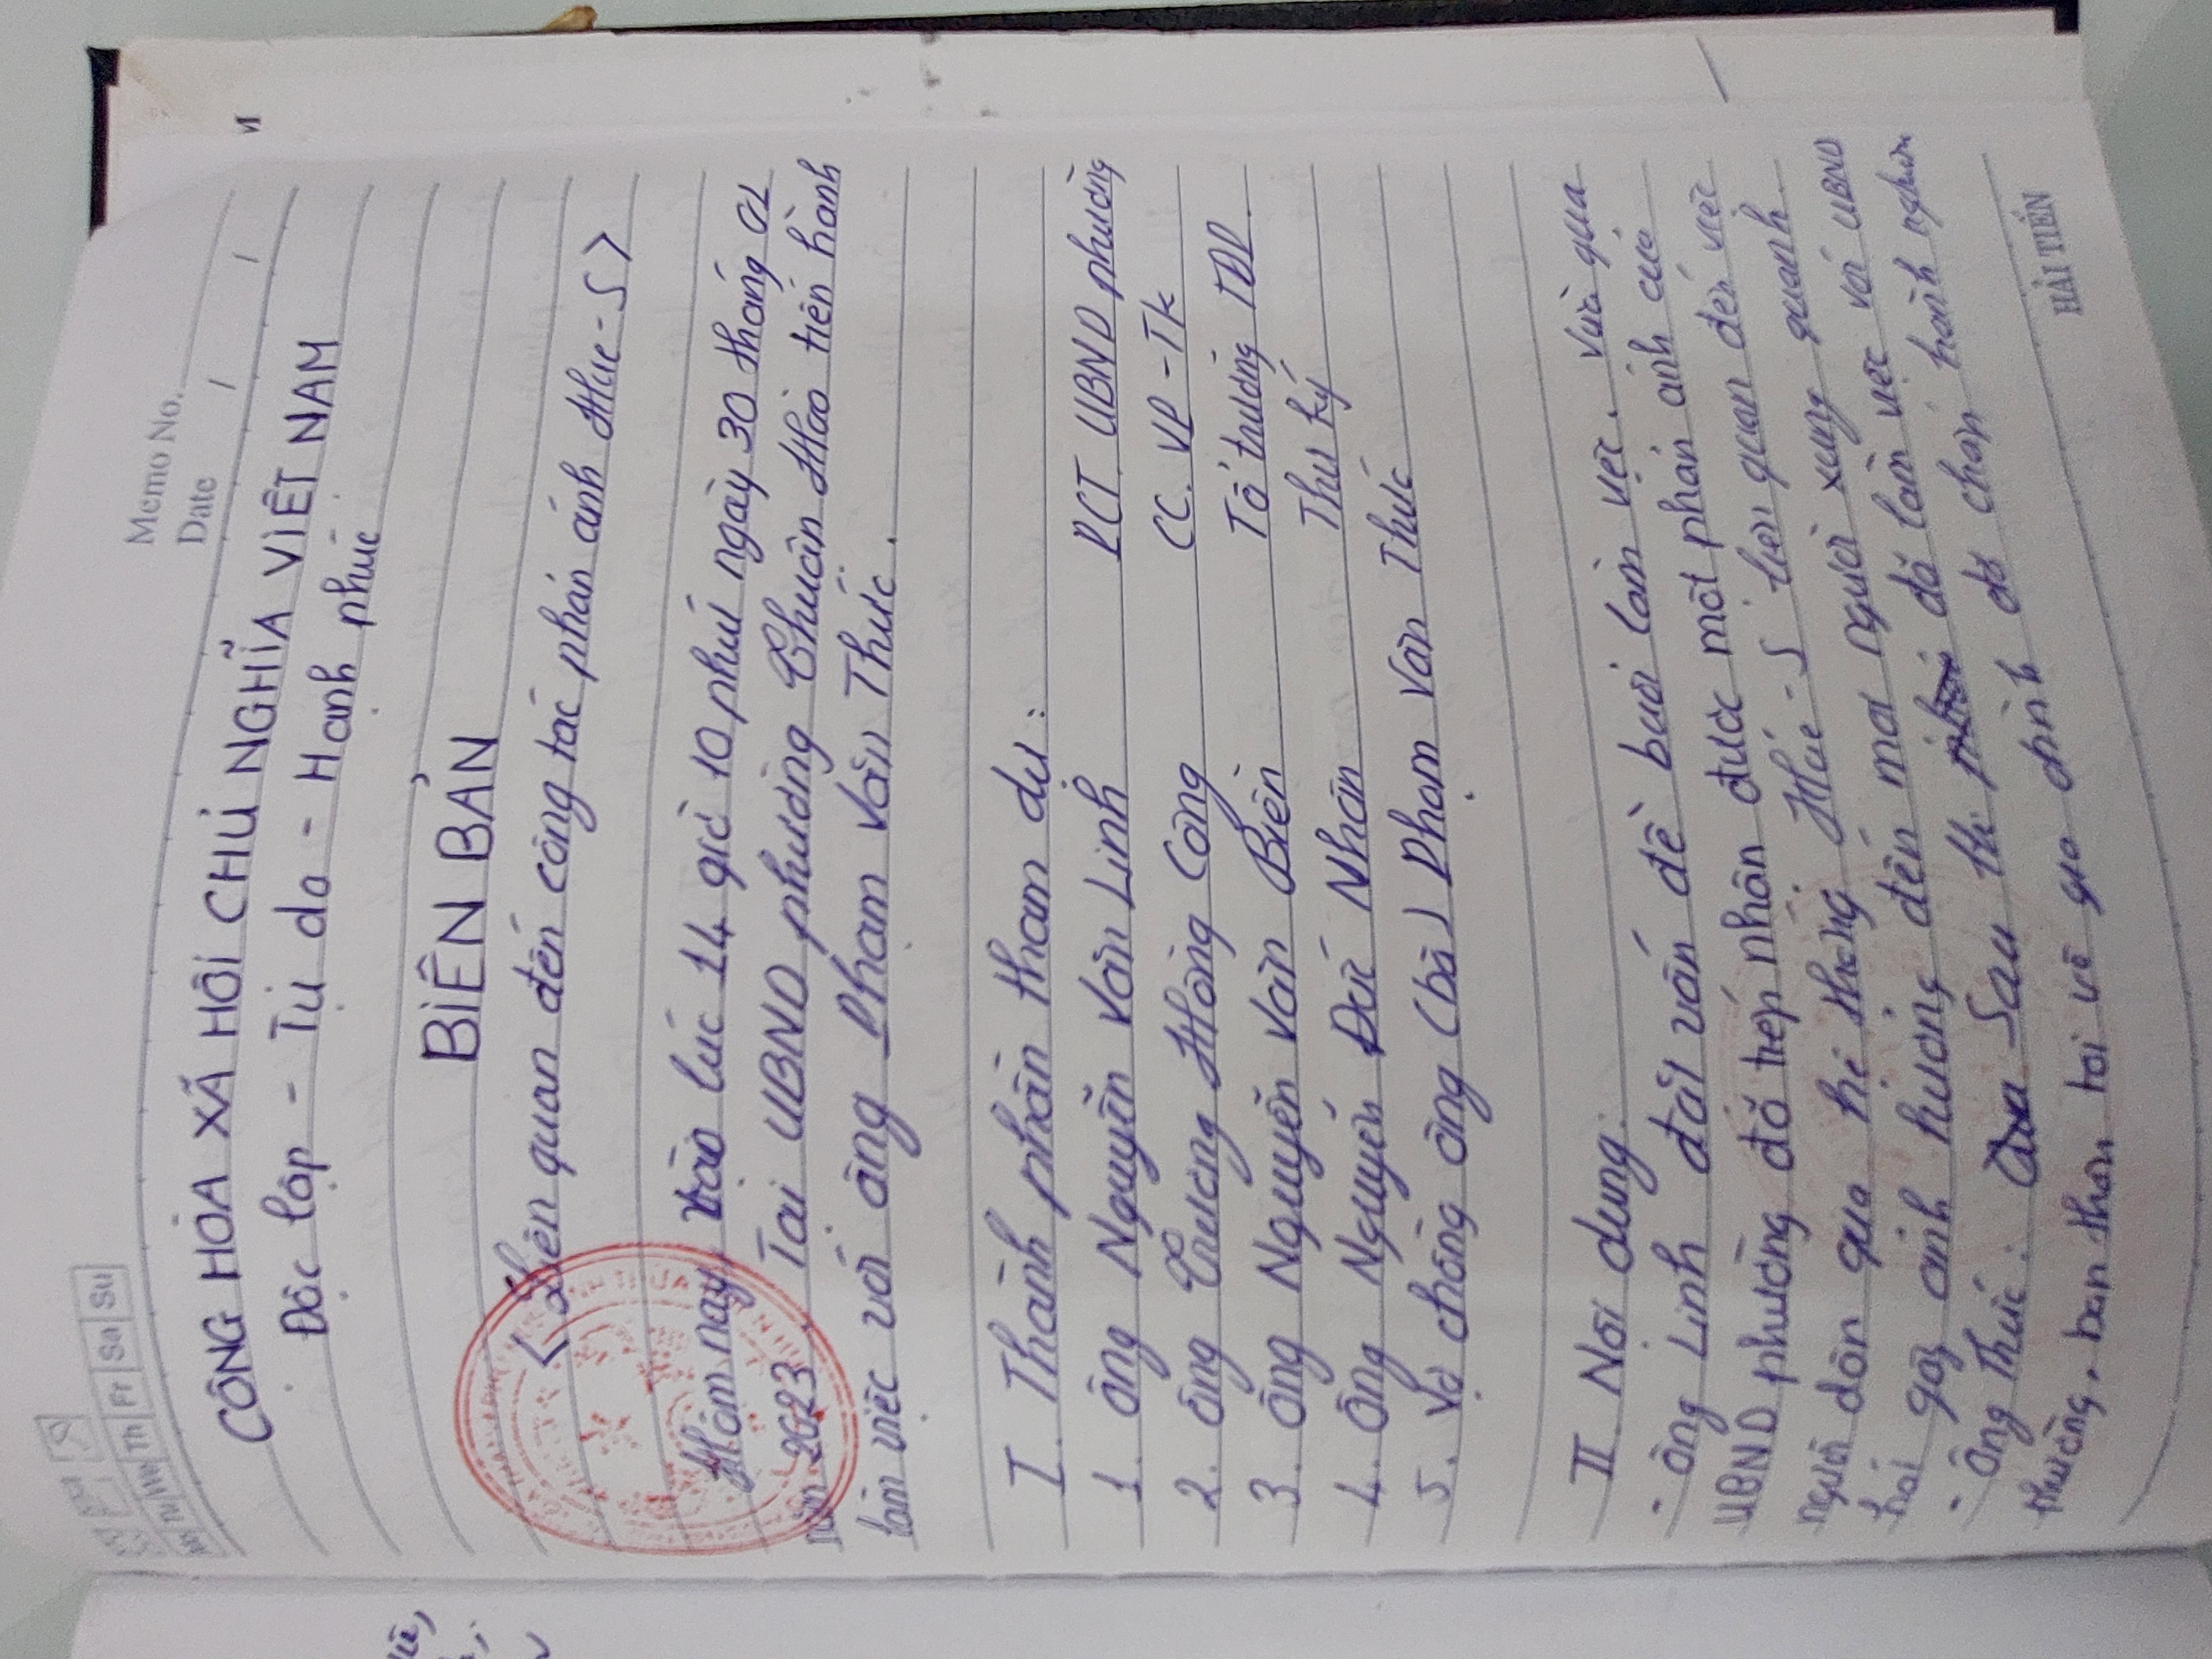 Memo No.
Date / /
Mo Tu We Th Fr Sa Su
CỘNG HÒA XÃ HỘI CHỦ NGHĨA VIỆT NAM
Độc lập - Tự do - Hạnh phúc
BIÊN BẢN
< Liên quan đến công tác phản ánh Hue-S >
Hôm nay, vào lúc 14 giờ 10 phút ngày 30 tháng 01
năm 2023. Tại UBND phường Thuận Hòa tiến hành
làm việc với ông Phạm Văn Thức.
I. Thành phần tham dự:
1. Ông Nguyễn Văn Linh PCT UBND phường
2. Ông Trương Hồng Công CC. VP-TK
3. Ông Nguyễn Văn Biên Tổ trưởng TDP.
4. Ông Nguyễn Đức Nhân Thư ký
5. Vợ chồng ông (bà) Phạm Văn Thức
II Nội dung:
- Ông Linh đặt vấn đề buổi làm việc. Vừa qua
UBND phường đã tiếp nhận được một phản ánh của
người dân qua hệ thống Hue-S liên quan đến việc
hơi gas ảnh hưởng đến mọi người xung quanh.
- Ông Thức: Sau khi đã làm việc với UBND
phường, bản thân tôi về gia đình đã chấn hành nghiêm
HẢI TIẾN